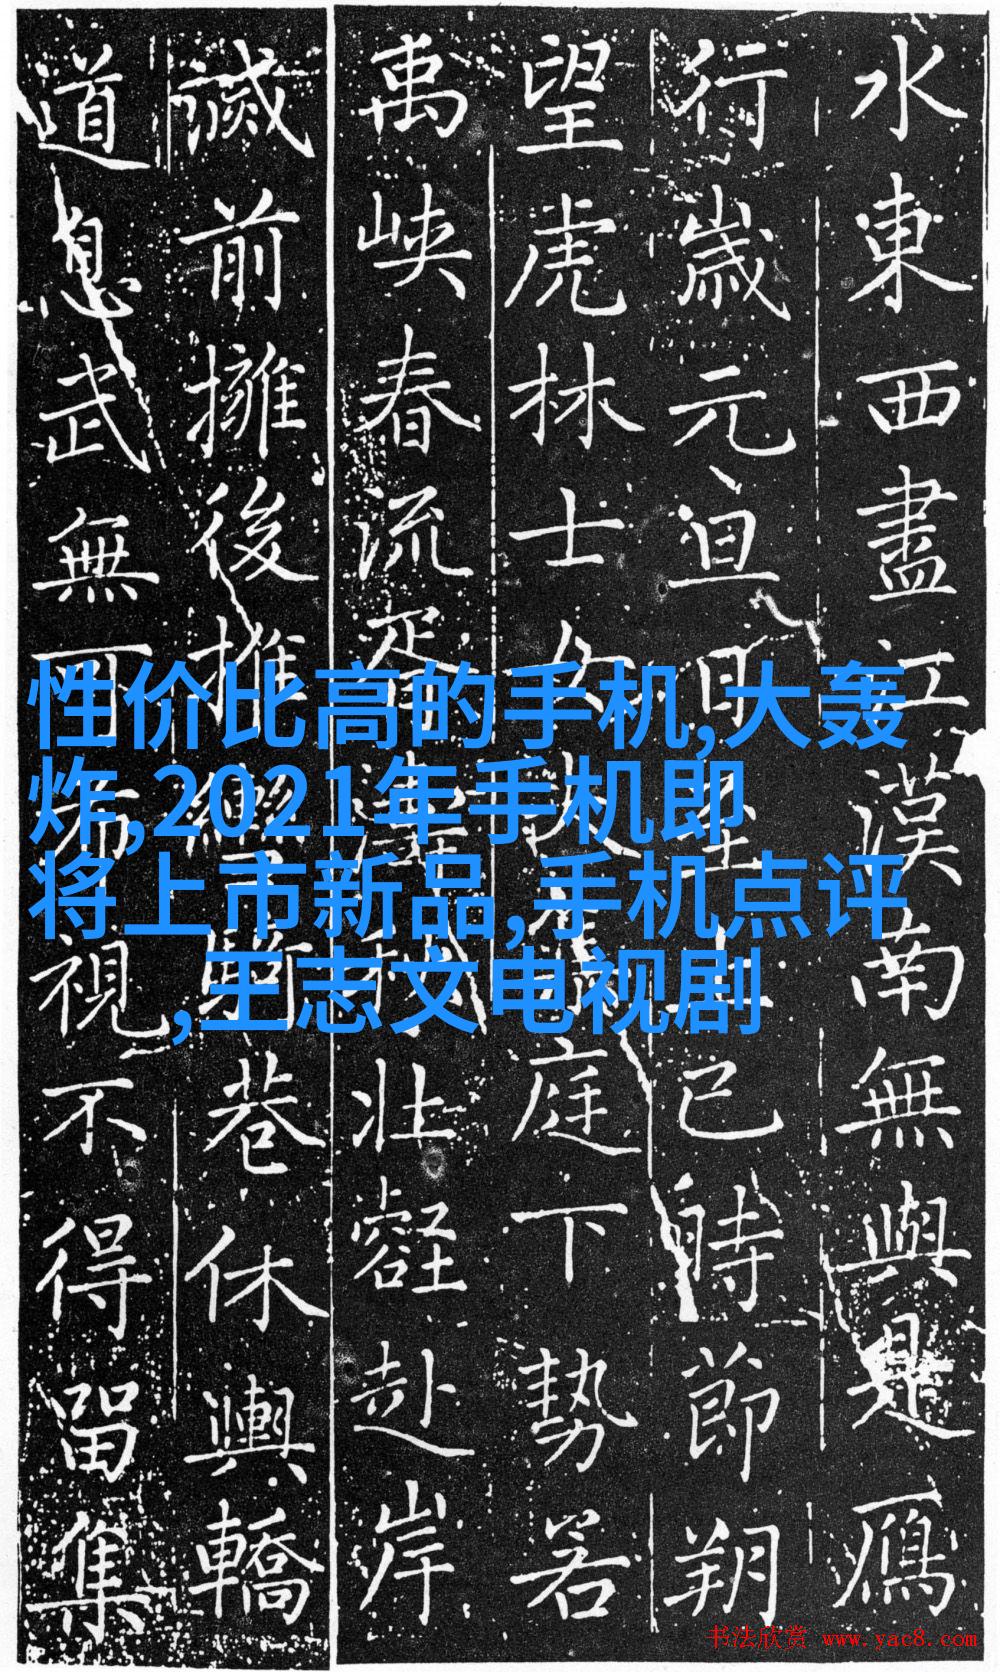 水東西盡江漢南無與是鴈
行歲元旦明
已時節朔
望虎林士
庭下勢若
禹峽春流
壯壑赴岸
滅前擁後推
巷休輿轎
道息武無
視不得留集
性价比高的手机,大轰
炸,2021年手机即
将上市新品,手机点评
,王志文电视剧
书法欣赏 www.yac8.com